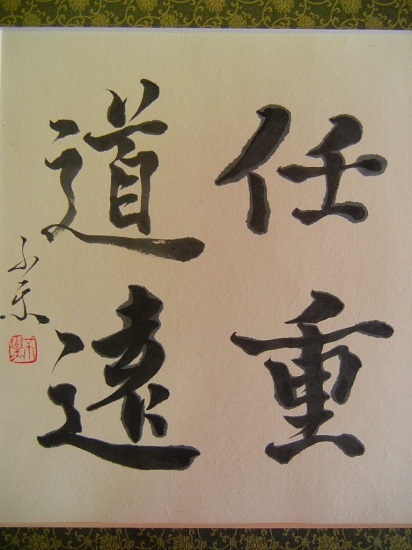 任重
道遠